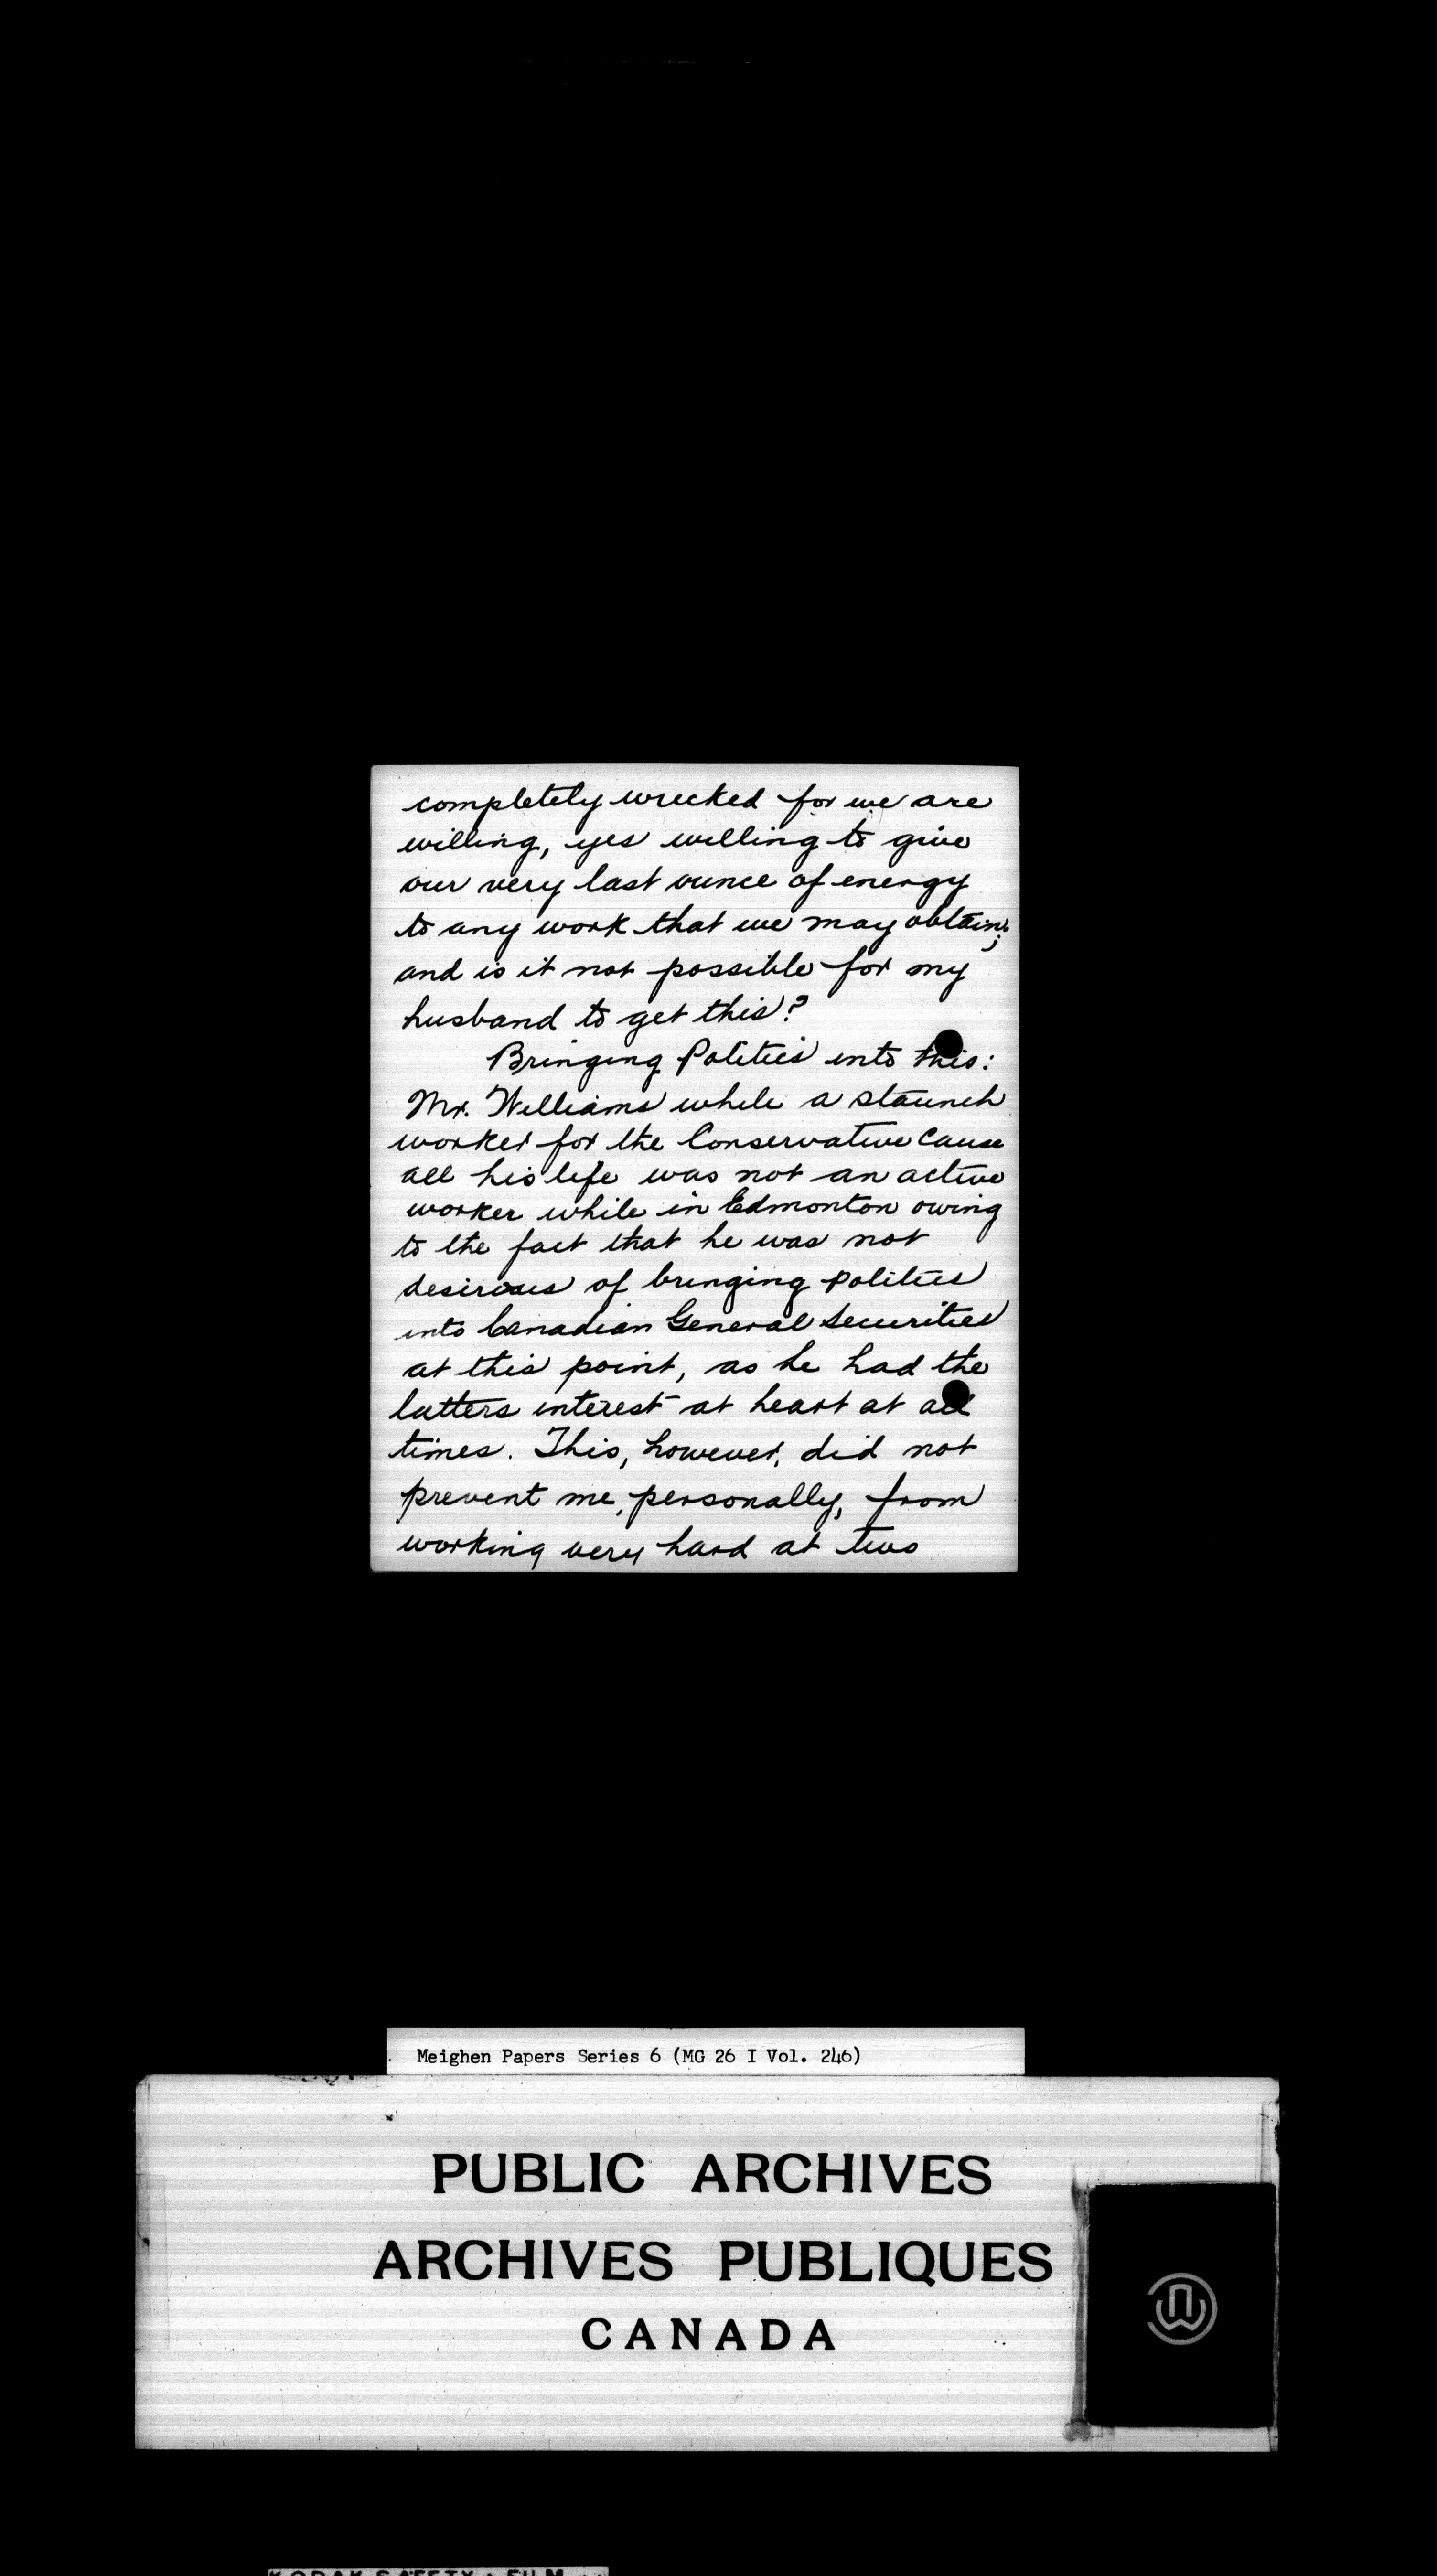 completely wrecked for we are
willing, yes willing to give
our very last ounce of energy
to any work that we may obtain;
and is it not possible for my
husband to get this?
Bringing Politics into this:
Mr. Williams while a staunch
worker for the Conservative Cause
all his life was not an active
worker while in Edmonton owing
to the fact that he was not
desirous of bringing politics
into Canadian General Securities
at this point, as he had the
latters interest at heart at all
times. This, however, did not
prevent me, personally, from
working very hard at two
Meighen Papers Series 6 (MG 26 I Vol. 246)
PUBLIC ARCHIVES
ARCHIVES PUBLIQUES
CANADA
KODAK SAFETY FILM